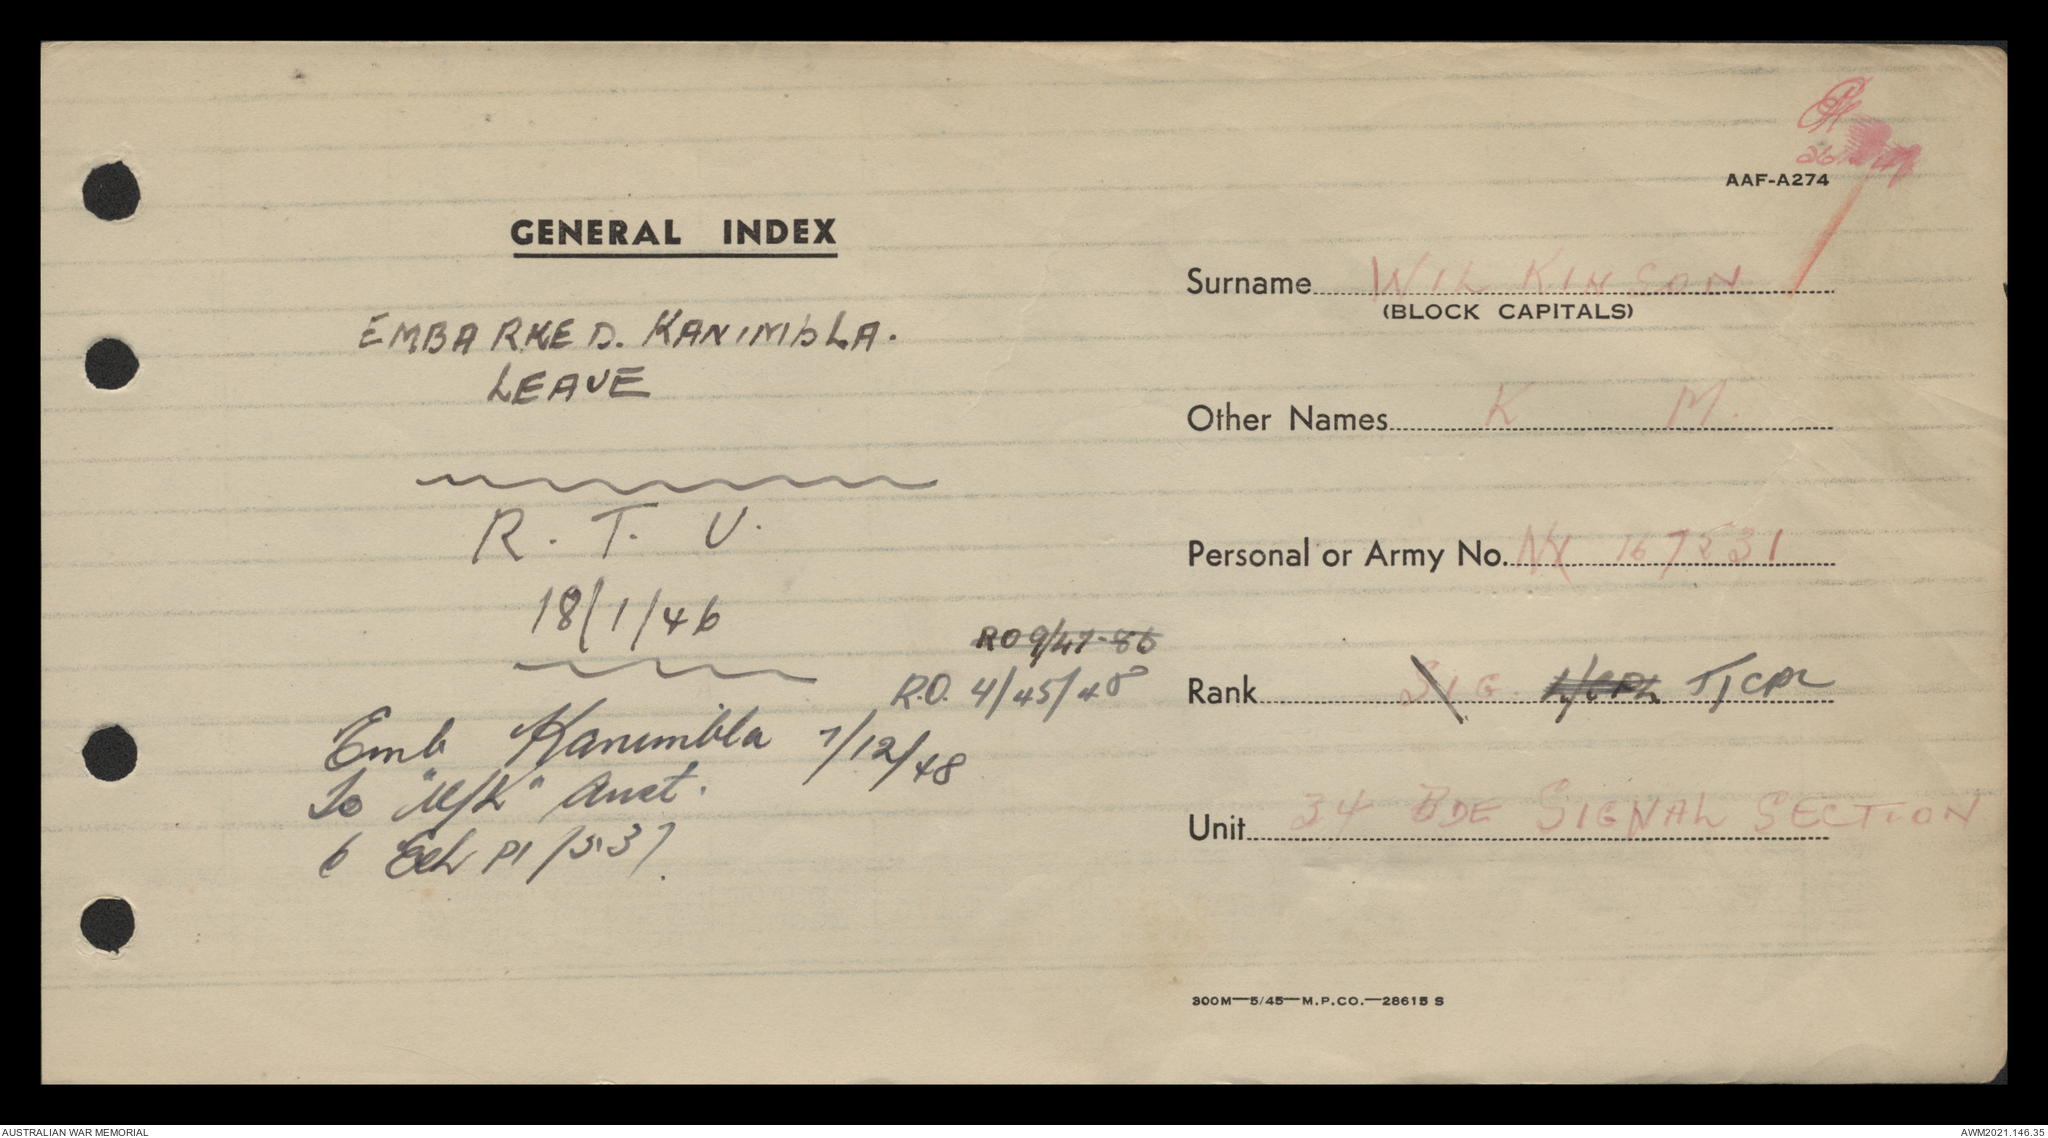 AAF-A274
GENERAL INDEX
EMBARKED. KANIMbLA.
LEAVE
R. T. U.
18/1/46
RO 9/47-86
R.O. 4/45/48
Emb Kanimbla 7/12/48
To "M/K" Aust.
6 Ech P1/537.
Surname WILKINSON
(BLOCK CAPITALS)
Other Names K M.
Personal or Army No. NX 167531
Rank SIG. L/CPL T/CPL
Unit 34 BDE SIGNAL SECTION
300M—5/45—M.P.CO.—28615 S
AUSTRALIAN WAR MEMORIAL
AWM2021.146.35